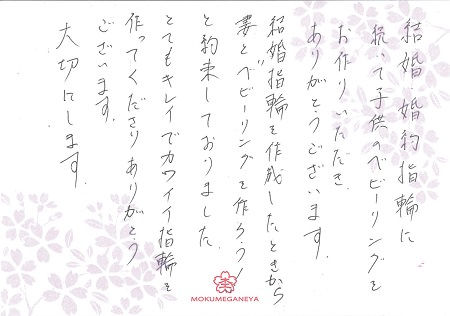 結婚・婚約指輪に
続いて子供のベビーリングを
お作りいただき
ありがとうございます。
結婚指輪を作成したときから
妻と"ベビーリングを作ろう!"
と約束しておりました。
とてもキレイでカワイイ指輪を
作ってくださりありがとう
ございます。
大切にします。
MOKUMEGANEYA